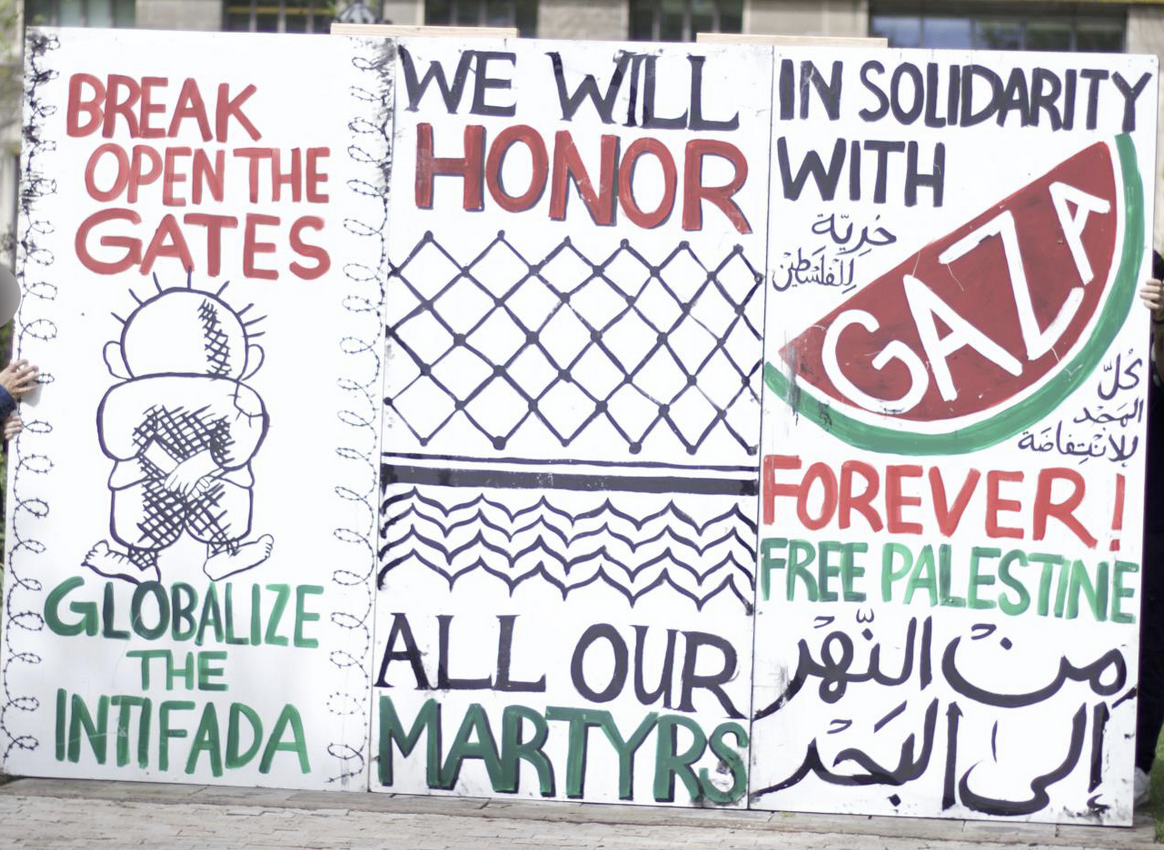 BREAK
OPEN THE
GATES
GLOBALIZE
THE
INTIFADA
WE WILL
HONOR
ALL OUR
MARTYRS
IN SOLIDARITY
WITH
حُريّة
لِلفَلَسْطين
GAZA
كُلّ
المَجْد
لِلانْتِفاضَة
FOREVER!
FREE PALESTINE
مِنْ النَّهْر
إلى البَحْر